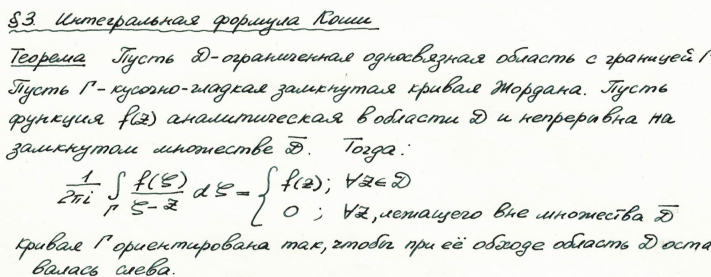 §3. Интегральная формула Коши
Теорема Пусть D-ограниченная односвязная область с границей Г
Пусть Г-кусочно-гладкая замкнутая кривая Жордана. Пусть
функция f(z) аналитическая в области D и непрерывна на
замкнутом множестве D̅. Тогда:
1/(2πi) ∫_Г f(ξ)/(ξ-z) dξ = { f(z); ∀z∈D
0 ; ∀z, лежащего вне множества D̅
кривая Г ориентирована так, чтобы при её обходе область D оста
валась слева.